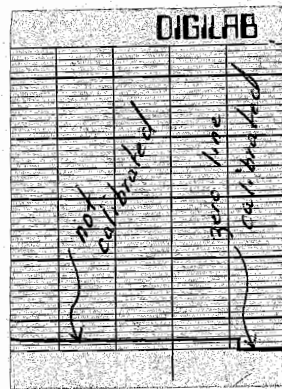 DIGILAB
not
calibrated
zero line
calibrated